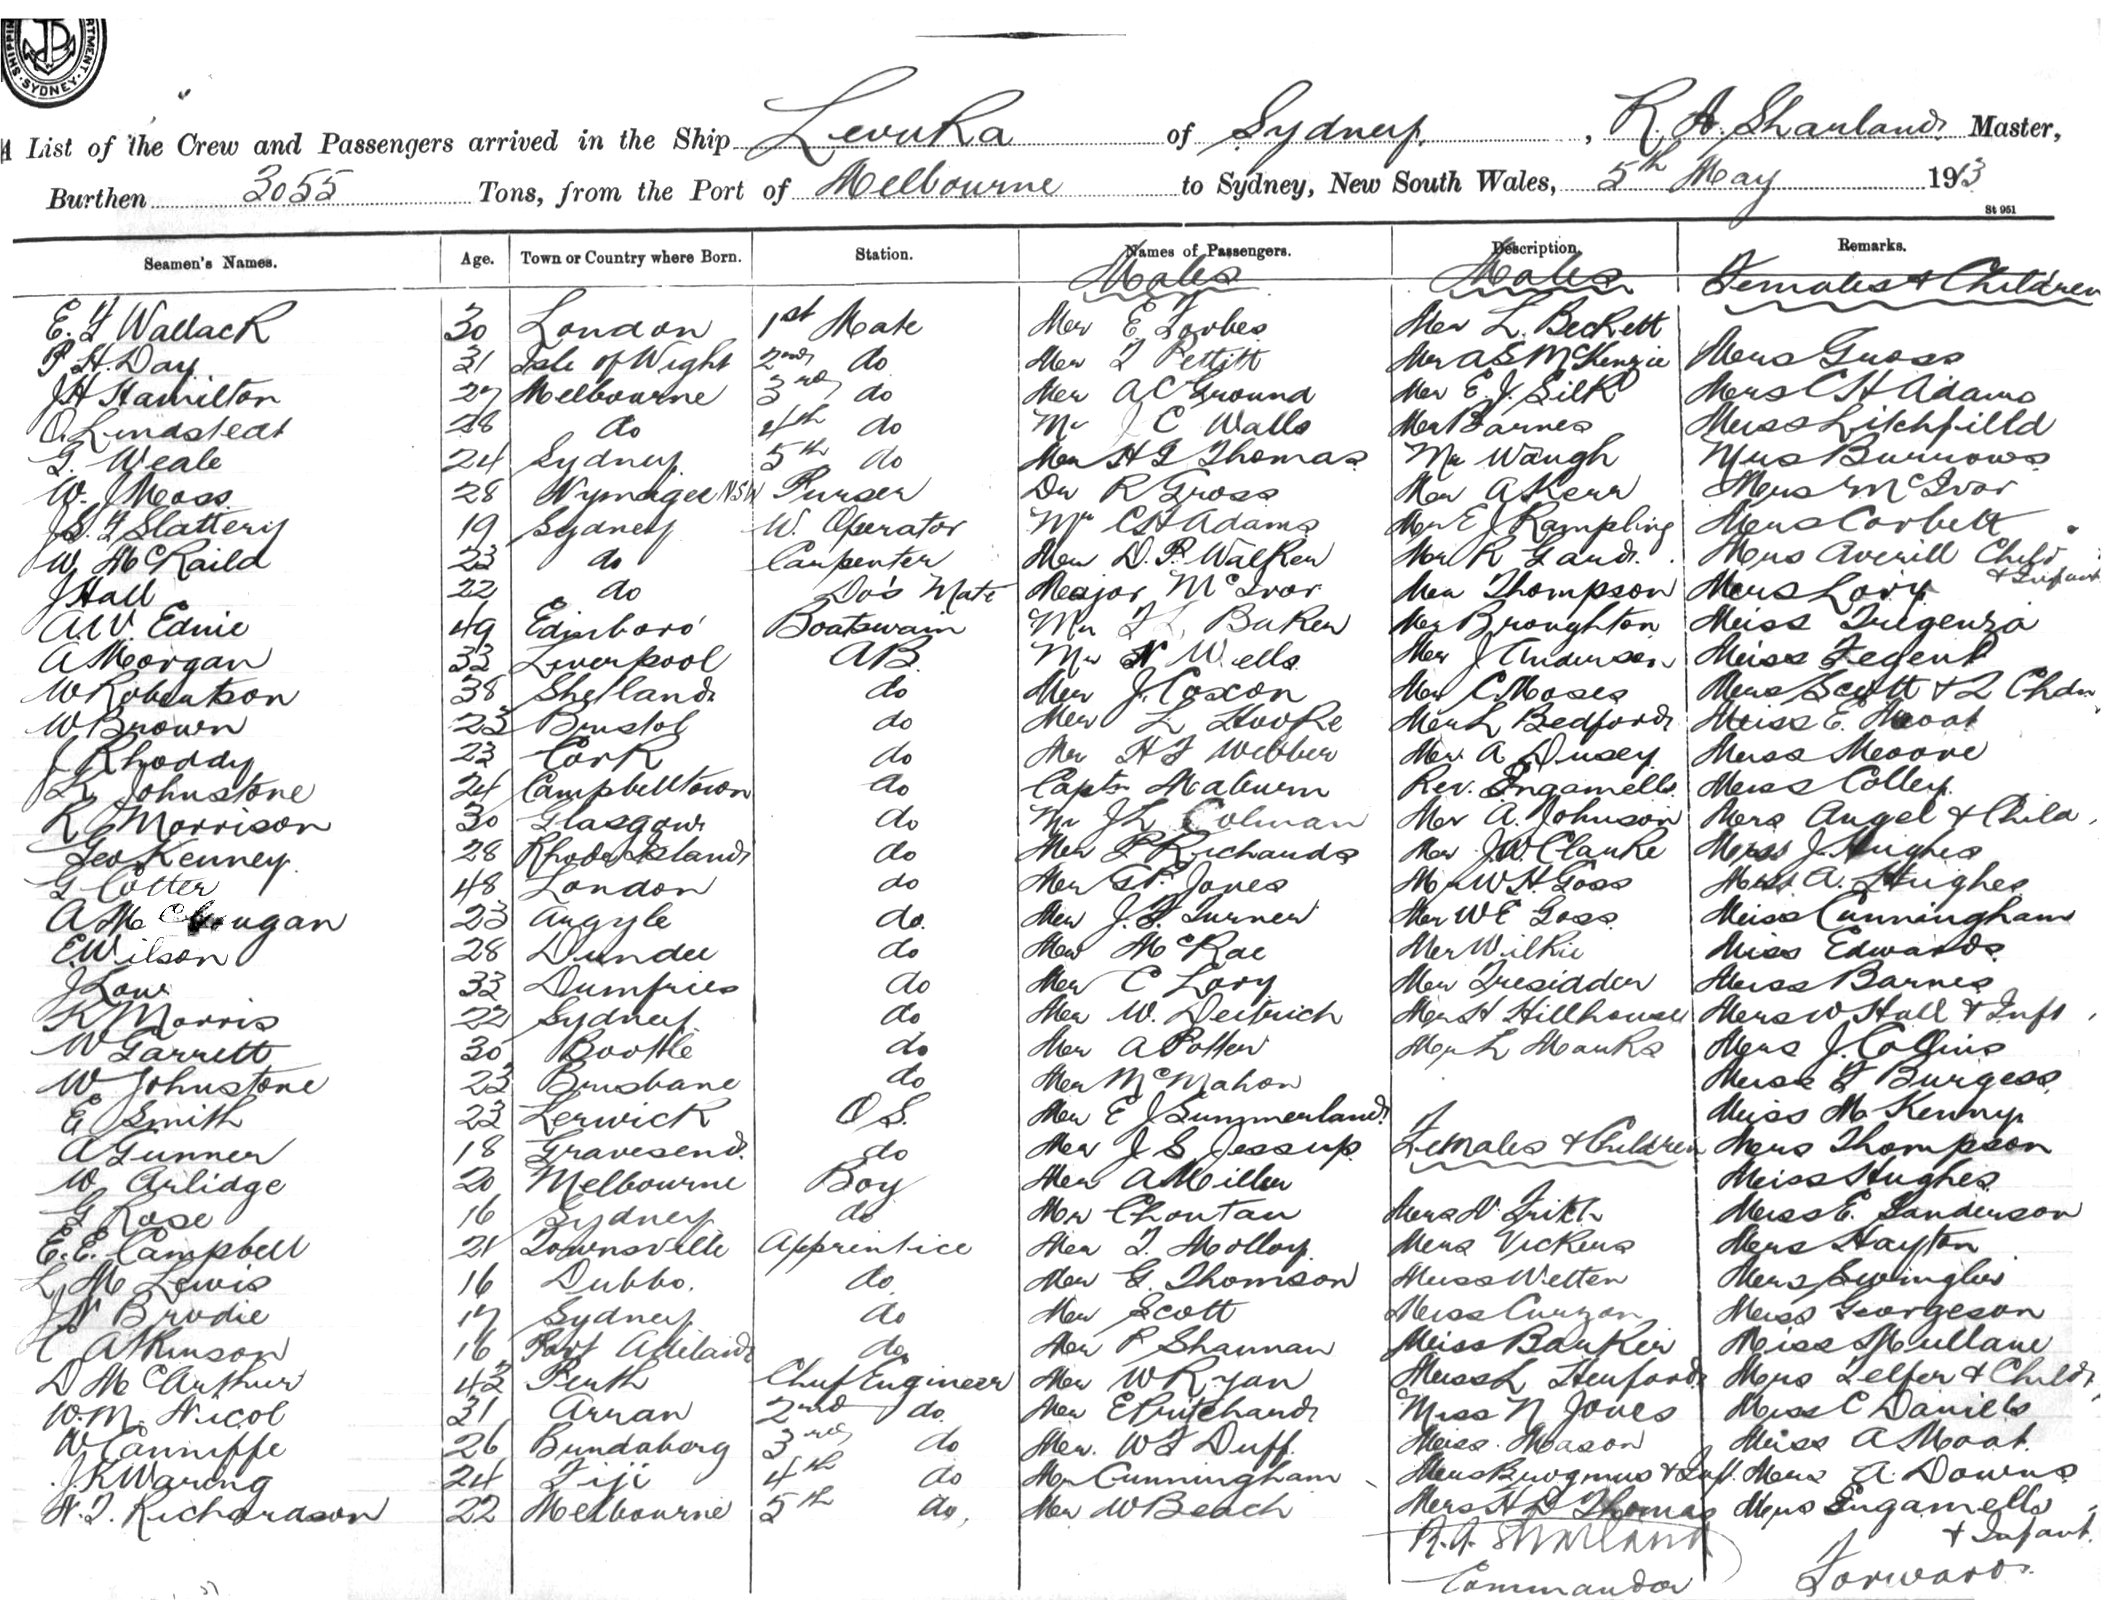 SYDNEY
A List of the Crew and Passengers arrived in the Ship Levuka of Sydney, R. A. Sharland Master,
Burthen 3055 Tons, from the Port of Melbourne to Sydney, New South Wales, 5th May 1913
St 951
Seamen's Names. Age. Town or Country where Born. Station. Names of Passengers. Description. Remarks.
Males Males Females & Children
E. F Wallack 30 London 1st Mate Mr E Forbes Mr L. Beckett
P. H. Day 31 Isle of Wight 2nd do Mr F Pettitt Mr A S McKenzie Mrs Gross
J H Hamilton 27 Melbourne 3rd do Mr A C Ground Mr E. J. Silk Mrs C H Adams
O. Lindstedt 28 do 4th do Mr J C Walls Mr Barnes Miss Litchfield
G. Weale 24 Sydney 5th do Mr H F Thomas Mr Waugh Mrs Burrows
W. J Moss 28 Nymagee NSW Purser Dr R Gross Mr A Kerr Mrs McIvor
J. S. F Slattery 19 Sydney W. Operator Mr C H Adams Mr E J Rampling Mrs Corbett
W. McRaild 23 do Carpenter Mr D. P. Walker Mr R Gard Mrs Averill Child
& Infant
J Hall 22 do Do's Mate Major McIvor Mr Thompson Mrs Lory
A. W. Ednie 49 Edinboro' Boatswain Mr Baker Mr Broughton Miss Trigenza
A Morgan 33 Liverpool A B. Mr N Wells Mr J. Anderson Miss Fegent
W Robertson 38 Shetland do Mr J. Coxon Mr C. Moses Mrs Scott & 2 Chdn
W Brown 23 Bristol do Mr L Hooke Mr L Bedford Miss E. Moat
J Rhoddy 23 Cork do Mr H F Webber Mr A Dusey Miss Moore
K Johnstone 24 Campbelltown do Captn Maburn Rev. Ingamells Miss Colley
R C Morrison 30 Glasgow do Mr J L Colman Mr A. Johnson Mrs Angel & Child
Geo Kenney 28 Rhode Island do Mr F Richards Mr J. W. Clarke Miss J. Hughes
G Cotter 48 London do Mr G P. Jones Mr W H. Goss Miss A. Hughes
A Mc ugan 23 Argyle do. Mr J. F. Turner Mr W E Goss Miss Cunningham
E. Wilson 28 Dundee do Mr McRae Mr Wilkie Miss Edwards
J Low 33 Dumfries do Mr C Lory Mr Tresidder Miss Barnes
K Morris 22 Sydney do Mr W. Deitrich Mr H Hillhouse Mrs W Hall & Inft
W Garrett 30 Bootle do Mr A Potter Mr L Marks Mrs J. Collins
W Johnstone 23 Brisbane do Mr McMahon Miss F Burgess
E Smith 23 Lerwick O S. Mr E J Summerland Miss M Kenny
A Gunner 18 Gravesend do Mr J S Jessup Females & Children Mrs Thompson
W Arlidge 20 Melbourne Boy Mr A Miller Miss Hughes
G Rose 16 Sydney do Mr Chontan Mrs N Frith Miss E. Sanderson
E. E. Campbell 21 Townsville Apprentice Mr T. Molloy Mrs Vickers Mrs Hayton
L M Lewis 16 Dubbo. do. Mr G. Thomson Miss Wetten Mrs Swingler
J N Brodie 17 Sydney do Mr Scott Miss Curzon Miss Georgeson
C Atkinson 16 Port Adelaide do Mr P Shannan Miss Barker Miss Mullane
D McArthur 43 Perth Chief Engineer Mr W Ryan Miss L Henford Mrs Telfer & Child
W. M. Nicol 31 Arran 2nd do. Mr E Pritchard Miss N Jones Miss C Daniels
W Canniffe 26 Bundaberg 3rd do Mr. W F Duff. Miss Mason Miss A Moat
J. K Waring 24 Fiji 4th do Mr Cunningham Mrs Brogmus & Inft. Mrs A. Downs
N. F. Richardson 22 Melbourne 5th do, Mr W Beach Mrs H D Thomas Mrs Engamells
& Infant.
R. A. Sharland
Commander Forward